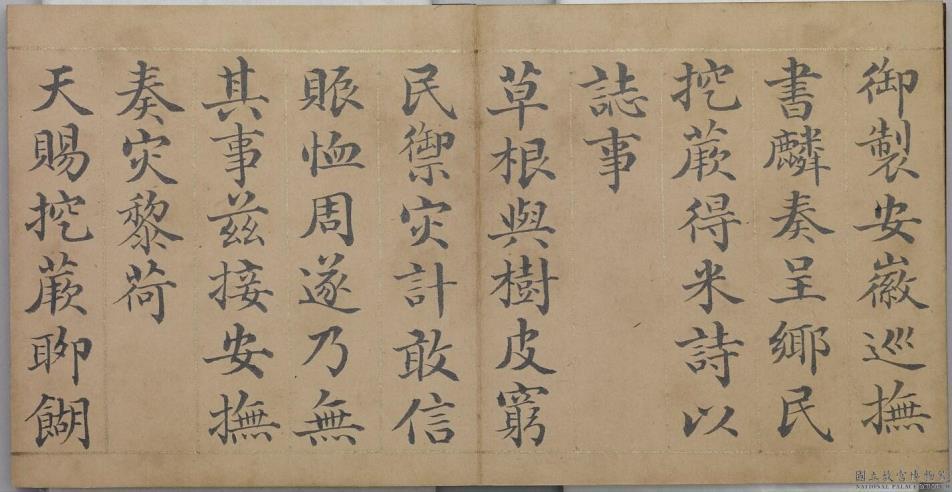 御製安徽巡撫
書麟奏呈鄉民
挖蕨得米詩以
誌事
草根與樹皮窮
民禦灾計敢信
賑恤周遂乃無
其事兹接安撫
奏灾黎荷
天賜挖蕨聊餬
國立故宮博物院
NATIONAL PALACE MUSEUM